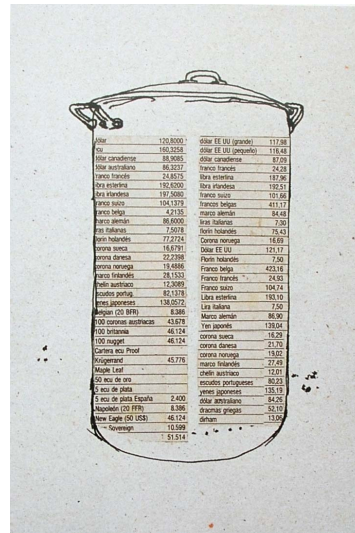 dólar 120,8000
ecu 160,3258
dólar canadiense 88,9085
dólar australiano 86,3237
franco francés 24,6575
libra esterlina 192,6200
libra irlandesa 197,5080
franco suizo 104,1379
franco belga 4,2135
marco alemán 86,6000
liras italianas 7,5078
florín holandés 77,2724
corona sueca 16,6791
corona danesa 22,2398
corona noruega 19,4886
marco finlandés 28,1533
chelín austriaco 12,3089
escudos portug. 82,1378
yenes japoneses 138,0572
Belgian (20 BFR) 8.386
100 coronas austriacas 43.678
100 britannia 46.124
100 nugget 46.124
Cartera ecu Proof
Krügerrand 45,776
Maple Leaf
50 ecu de oro
5 ecu de plata
5 ecu de plata España 2.400
Napoleón (20 FFR) 8.386
New Eagle (50 US$) 46.124
Sovereign 10.599
51.514
dólar EE UU (grande) 117,98
dólar EE UU (pequeño) 116,48
dólar canadiense 87,09
franco francés 24,28
libra esterlina 187,96
libra irlandesa 192,51
franco suizo 101,66
francos belgas 411,17
marco alemán 84,48
liras italianas 7,30
florín holandés 75,43
Corona noruega 16,69
Dólar EE UU 121,17
Florín holandés 7,50
Franco belga 423,16
Franco francés 24,93
Franco suizo 104,74
Libra esterlina 193,10
Lira italiana 7,50
Marco alemán 86,90
Yen japonés 139,04
corona sueca 16,29
corona danesa 21,70
corona noruega 19,02
marco finlandés 27,49
chelín austriaco 12,01
escudos portugueses 80,23
yenes japoneses 135,19
dólar australiano 84,26
dracmas griegas 52,10
dirham 13,06